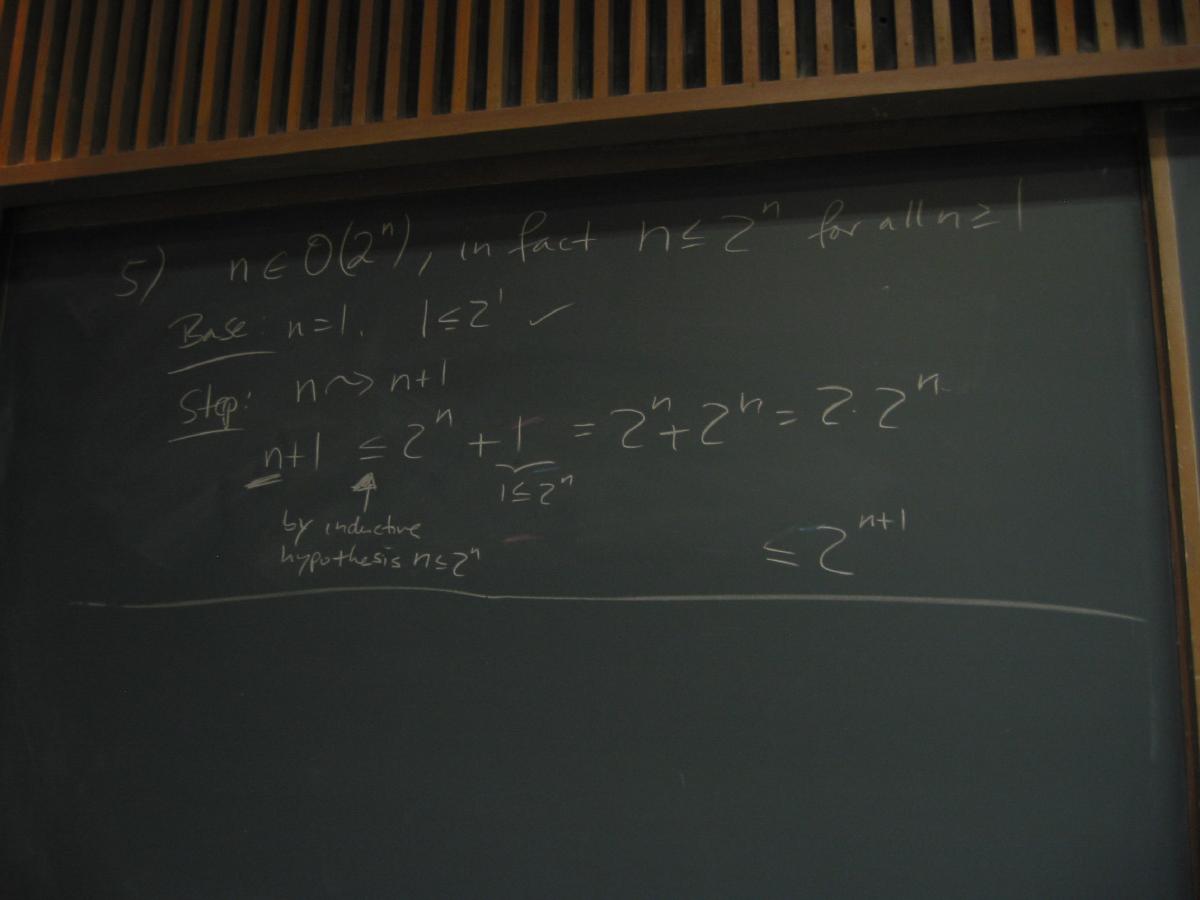 5) n ∈ O(2ⁿ), in fact n ≤ 2ⁿ for all n ≥ 1
Base: n=1. 1 ≤ 2¹ ✓
Step: n ⤳ n+1
n+1 ≤ 2ⁿ + 1 = 2ⁿ + 2ⁿ = 2·2ⁿ
1 ≤ 2ⁿ
by inductive
hypothesis n ≤ 2ⁿ
≤ 2ⁿ⁺¹